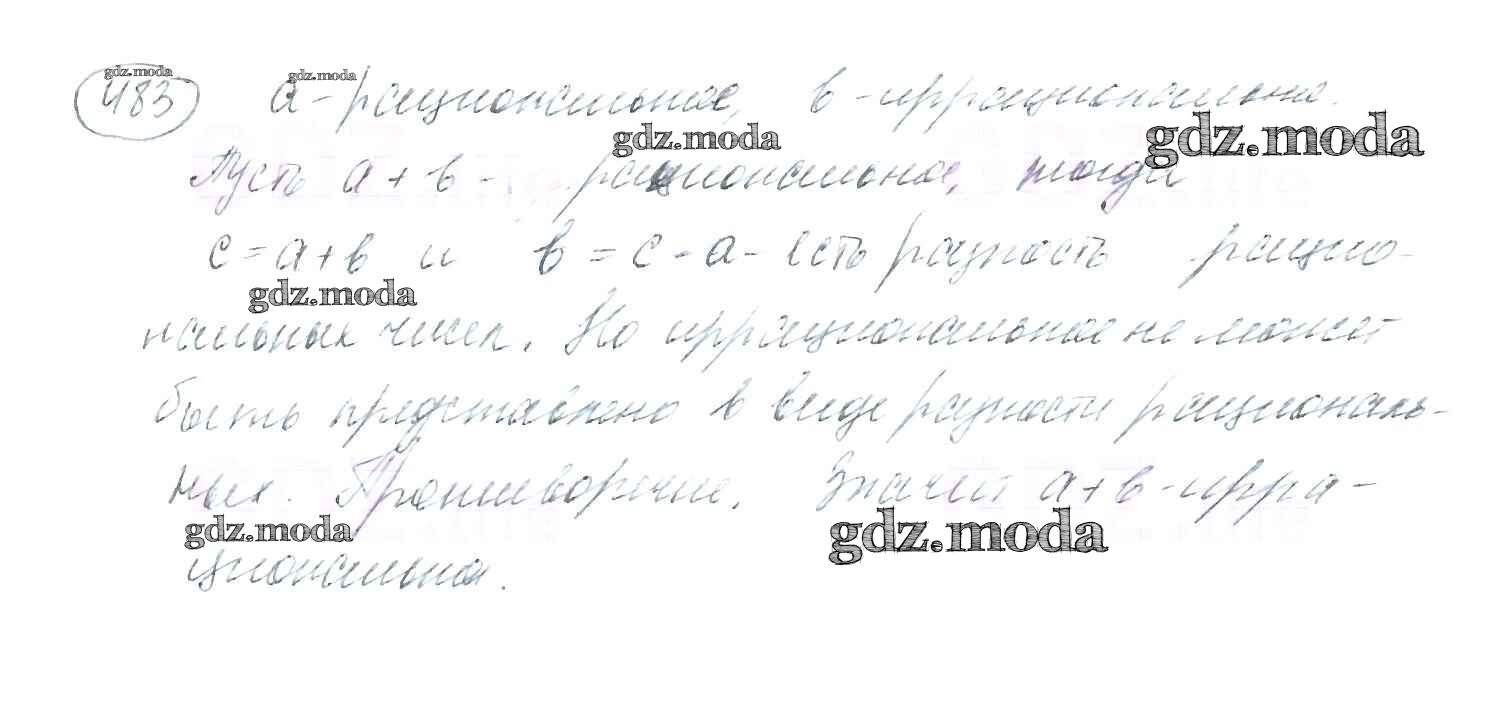 gdz.moda gdz.moda
483 a - рациональное, в - иррационально.
gdz.moda gdz.moda
Пусть а + в - рациональное, тогда
с = а + в и в = с - а - есть разность рацио-
gdz.moda
нальных чисел. Но иррациональное не может
быть представлено в виде разности рациональ-
ных. Противоречие. Значит а + в - ирра-
gdz.moda gdz.moda
циональное.